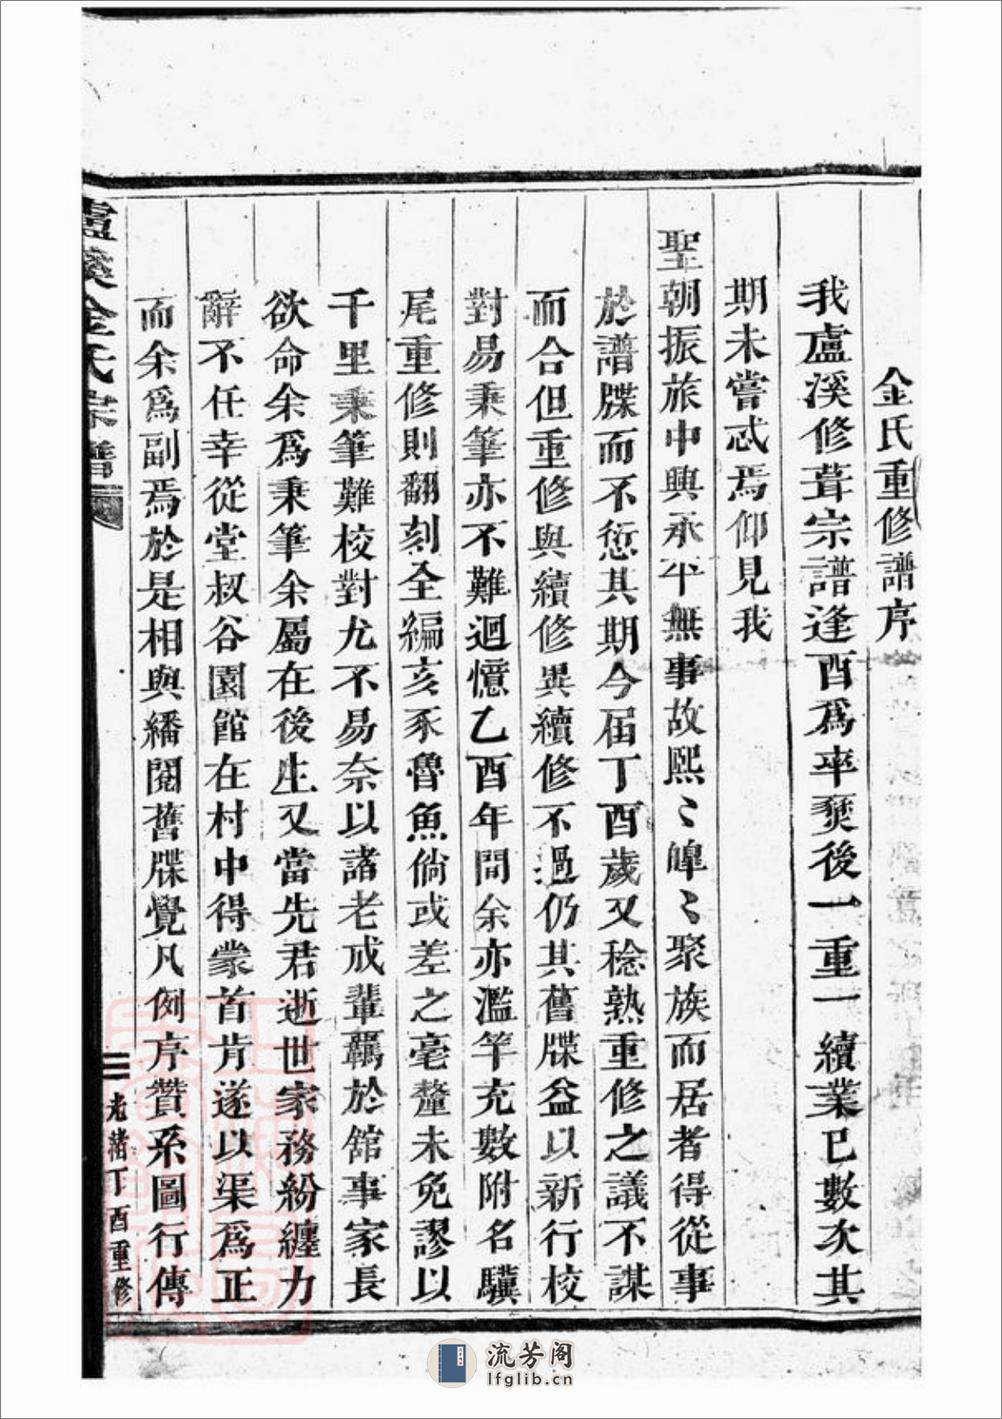 金氏重修譜序
我盧溪修葺宗譜逢酉爲率爰後一重一續業已數次其
期未嘗忒焉仰見我
聖朝振旅中興承平無事故熙〻皥〻聚族而居者得從事
於譜牒而不愆其期今屆丁酉歲又稔熟重修之議不謀
而合但重修與續修異續修不過仍其舊牒益以新行校
對易秉筆亦不難迴憶乙酉年間余亦濫竽充數附名驥
尾重修則翻刻全編亥豕魯魚倘或差之毫釐未免謬以
千里秉筆難校對尤不易奈以諸老成輩羈於舘事家長
欲命余爲秉筆余屬在後生又當先君逝世家務紛纏力
辭不任幸從堂叔谷園館在村中得蒙首肯遂以渠爲正
而余爲副焉於是相與繙閱舊牒覺凡例序贊系圖行傳
盧溪金氏宗譜
三
光緒丁酉重修
流芳阁
lfglib.cn